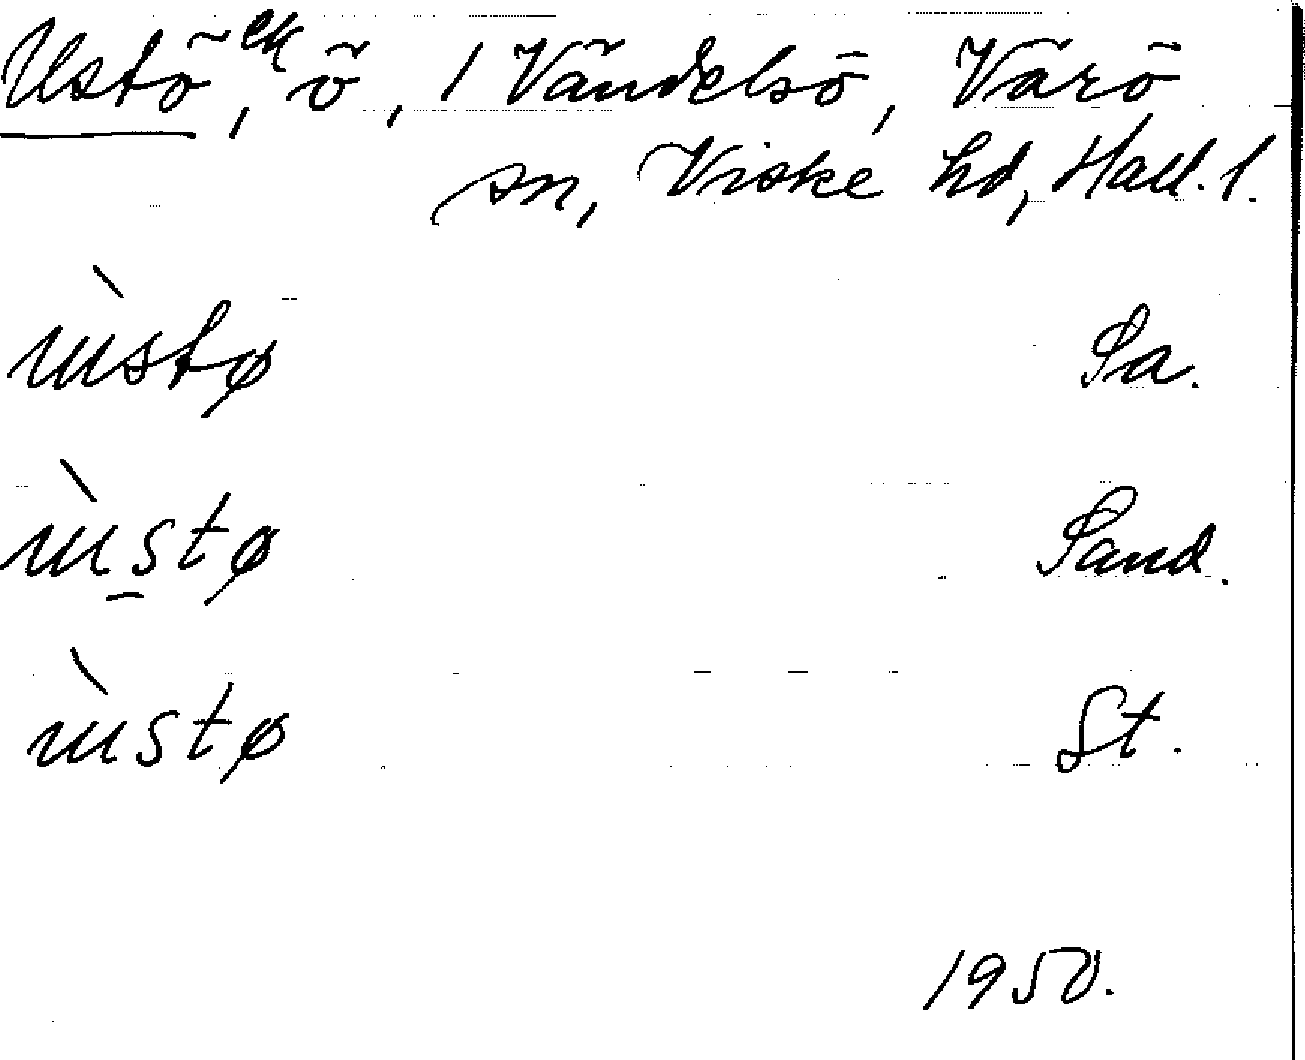 Ustö ek, ö, 1 Vändelsö, Värö
sn, Viske hd, Hall. l.
ùstø Sa.
ùstø Sand.
ùstø St.
1950.